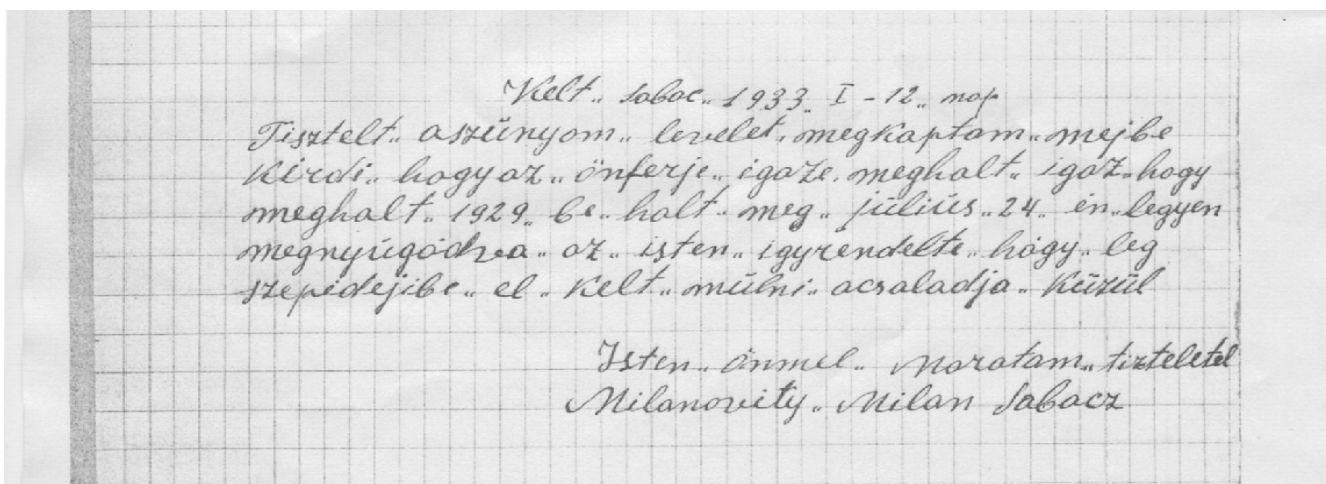 Kelt„ Sabac„ 1933„ I - 12„ nap
Tisztelt„ aszünyom„ levelet„ megkaptam„ mejbe
Kirdi„ hogy az„ önferje„ igaze„ meghalt„ igaz„ hogy
meghalt„ 1929„ be„ halt„ meg„ július„ 24„ en„ legyen
megnyúgodva„ az„ isten„ igyrendelte„ hogy„ leg
szepidejibe„ el„ Kelt„ múlni„ acsaladja„ Küzül
Isten„ önmel„ Maratam„ tizteletel
Milanovity„ Milan Sabacz